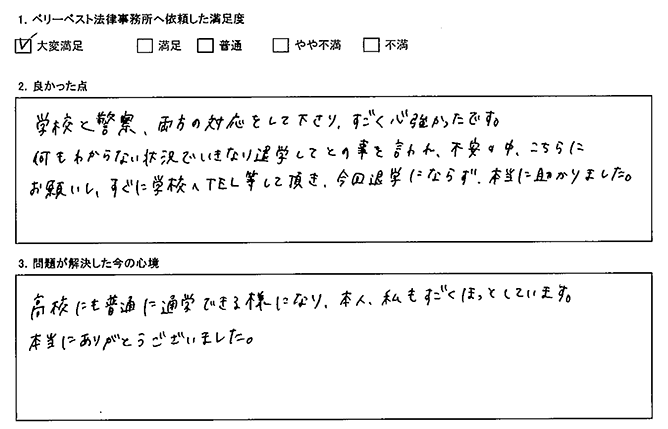 1. ベリーベスト法律事務所へ依頼した満足度
☑大変満足 □満足 □普通 □やや不満 □不満
2. 良かった点
学校と警察、両方の対応をして下さり、すごく心強かったです。
何もわからない状況でいきなり退学してとの事を言われ、不安の中、こちらに
お願いし、すぐに学校へTEL等して頂き、今回退学にならず、本当に助かりました。
3. 問題が解決した今の心境
高校にも普通に通学できる様になり、本人、私もすごくほっとしています。
本当にありがとうございました。